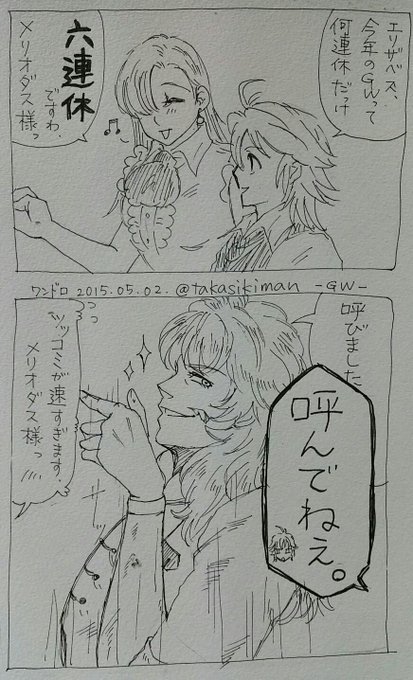 エリザベス、
今年のGWって
何連休だっけ
六連休
ですわ、
メリオダス様っ
ワンドロ 2015.05.02. @takasikiman -GW-
呼びました
呼んでねぇ。
っっ
ツッコミが速すぎます、
メリオダス様っ